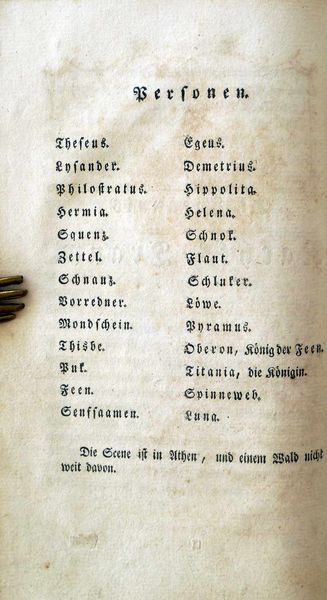 Personen.
Theseus. Egeus.
Lysander. Demetrius.
Philostratus. Hippolita.
Hermia. Helena.
Squenz. Schnok.
Zettel. Flaut.
Schnauz. Schluker.
Vorredner. Löwe.
Mondschein. Pyramus.
Thisbe. Oberon, König der Feen.
Puk. Titania, die Königin.
Feen. Spinneweb.
Senfsaamen. Luna.
Die Scene ist in Athen, und einem Wald nicht
weit davon.